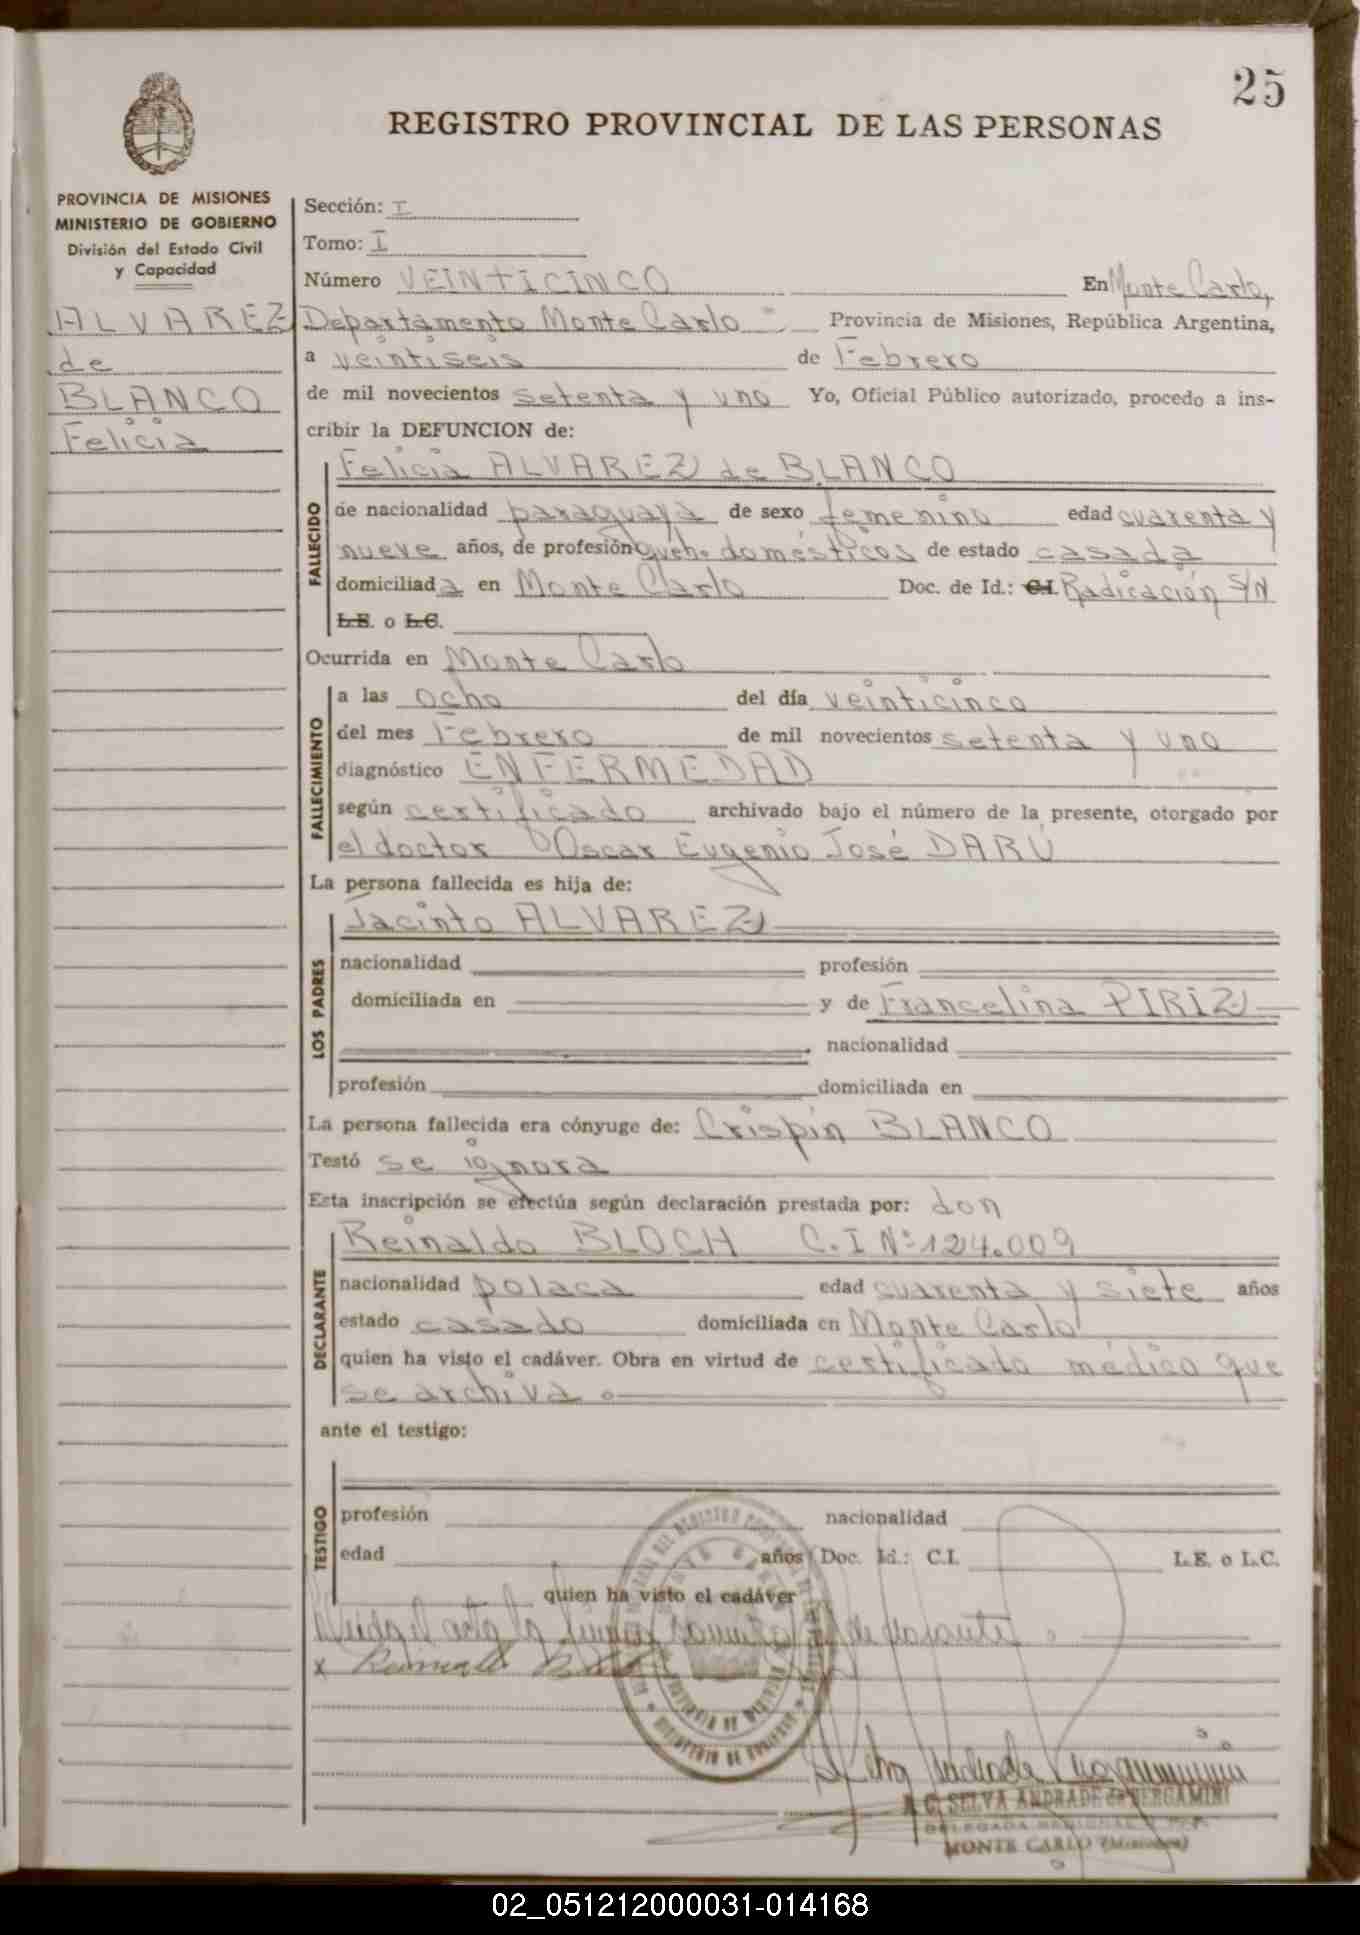 25
REGISTRO PROVINCIAL DE LAS PERSONAS
PROVINCIA DE MISIONES
MINISTERIO DE GOBIERNO
División del Estado Civil
y Capacidad
ALVAREZ
de
BLANCO
Felicia
Sección: I
Tomo: I
Número VEINTICINCO En Monte Carlo,
Departamento Monte Carlo Provincia de Misiones, República Argentina,
a veintiseis de Febrero
de mil novecientos setenta y uno Yo, Oficial Público autorizado, procedo a ins-
cribir la DEFUNCION de:
FALLECIDO
Felicia ALVAREZ de BLANCO
de nacionalidad paraguaya de sexo femenino edad cuarenta y
nueve años, de profesión queh. domésticos de estado casada
domiciliada en Monte Carlo Doc. de Id.: C.I. Radicación S/N
L.E. o L.C.
Ocurrida en Monte Carlo
FALLECIMIENTO
a las ocho del día veinticinco
del mes Febrero de mil novecientos setenta y uno
diagnóstico ENFERMEDAD
según certificado archivado bajo el número de la presente, otorgado por
el doctor Oscar Eugenio José DARÚ
La persona fallecida es hija de:
LOS PADRES
Jacinto ALVAREZ
nacionalidad profesión
domiciliada en y de Francelina PIRIZ
nacionalidad
profesión domiciliada en
La persona fallecida era cónyuge de: Crispin BLANCO
Testó se ignora
Esta inscripción se efectúa según declaración prestada por: don
DECLARANTE
Reinaldo BLOCH C.I Nº 124.009
nacionalidad polaca edad cuarenta y siete años
estado casado domiciliada en Monte Carlo
quien ha visto el cadáver. Obra en virtud de certificado médico que
se archiva.
ante el testigo:
TESTIGO
profesión nacionalidad
edad años Doc. Id.: C.I. L.E. o L.C.
quien ha visto el cadáver
Leida el acta la firma conmigo el declarante.
x
SELVA ANDRADE de BERGAMINI
DELEGADA
MONTE CARLO (Misiones)
02_051212000031-014168